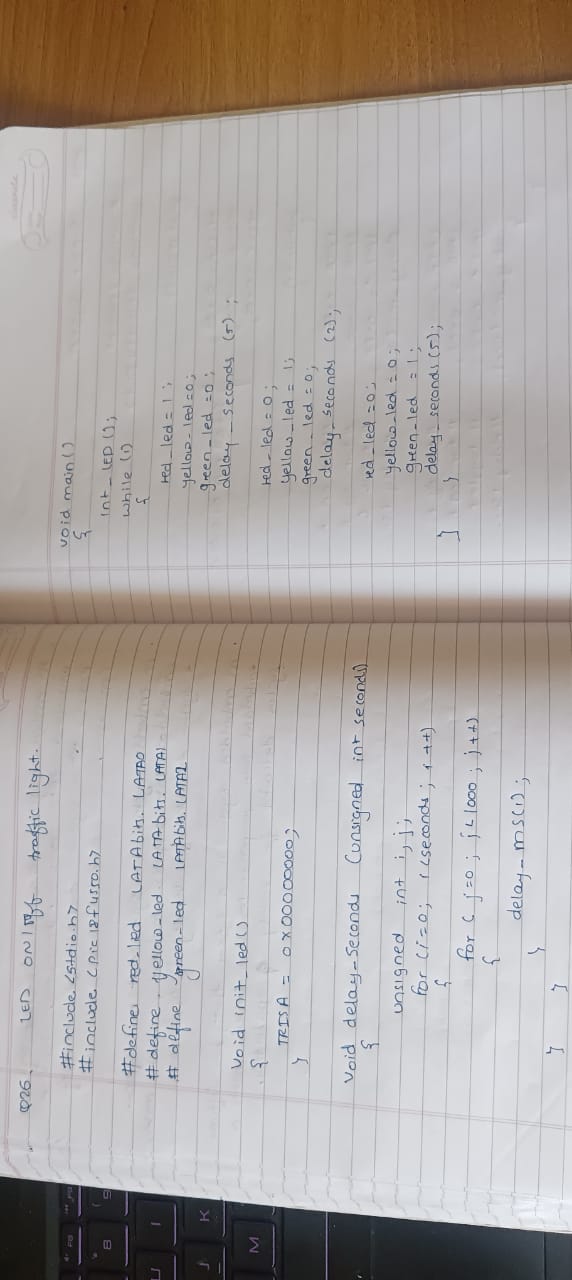 Q26. LED ON/Off traffic light.
#include <stdio.h>
#include <pic18fusso.h>
#define red_led LATAbits.LATA0
#define yellow-led LATAbits.LATA1
#define green-led LATAbits.LATA2
void init_led()
{
TRISA = 0x00000000;
}
void delay-seconds (unsigned int seconds)
{
unsigned int i, j;
for (i=0; i<seconds; i++)
{
for (j=0; j<1000; j++)
{
delay-ms(1);
}
} }
void main()
{
int_LED();
while (1)
{
red_led=1;
yellow-led=0;
green_led=0;
delay_seconds (5);
red-led=0;
yellow_led=1;
green-led=0;
delay-seconds (2);
red_led=0;
yellow_led=0;
green-led=1;
delay_seconds(5);
} }